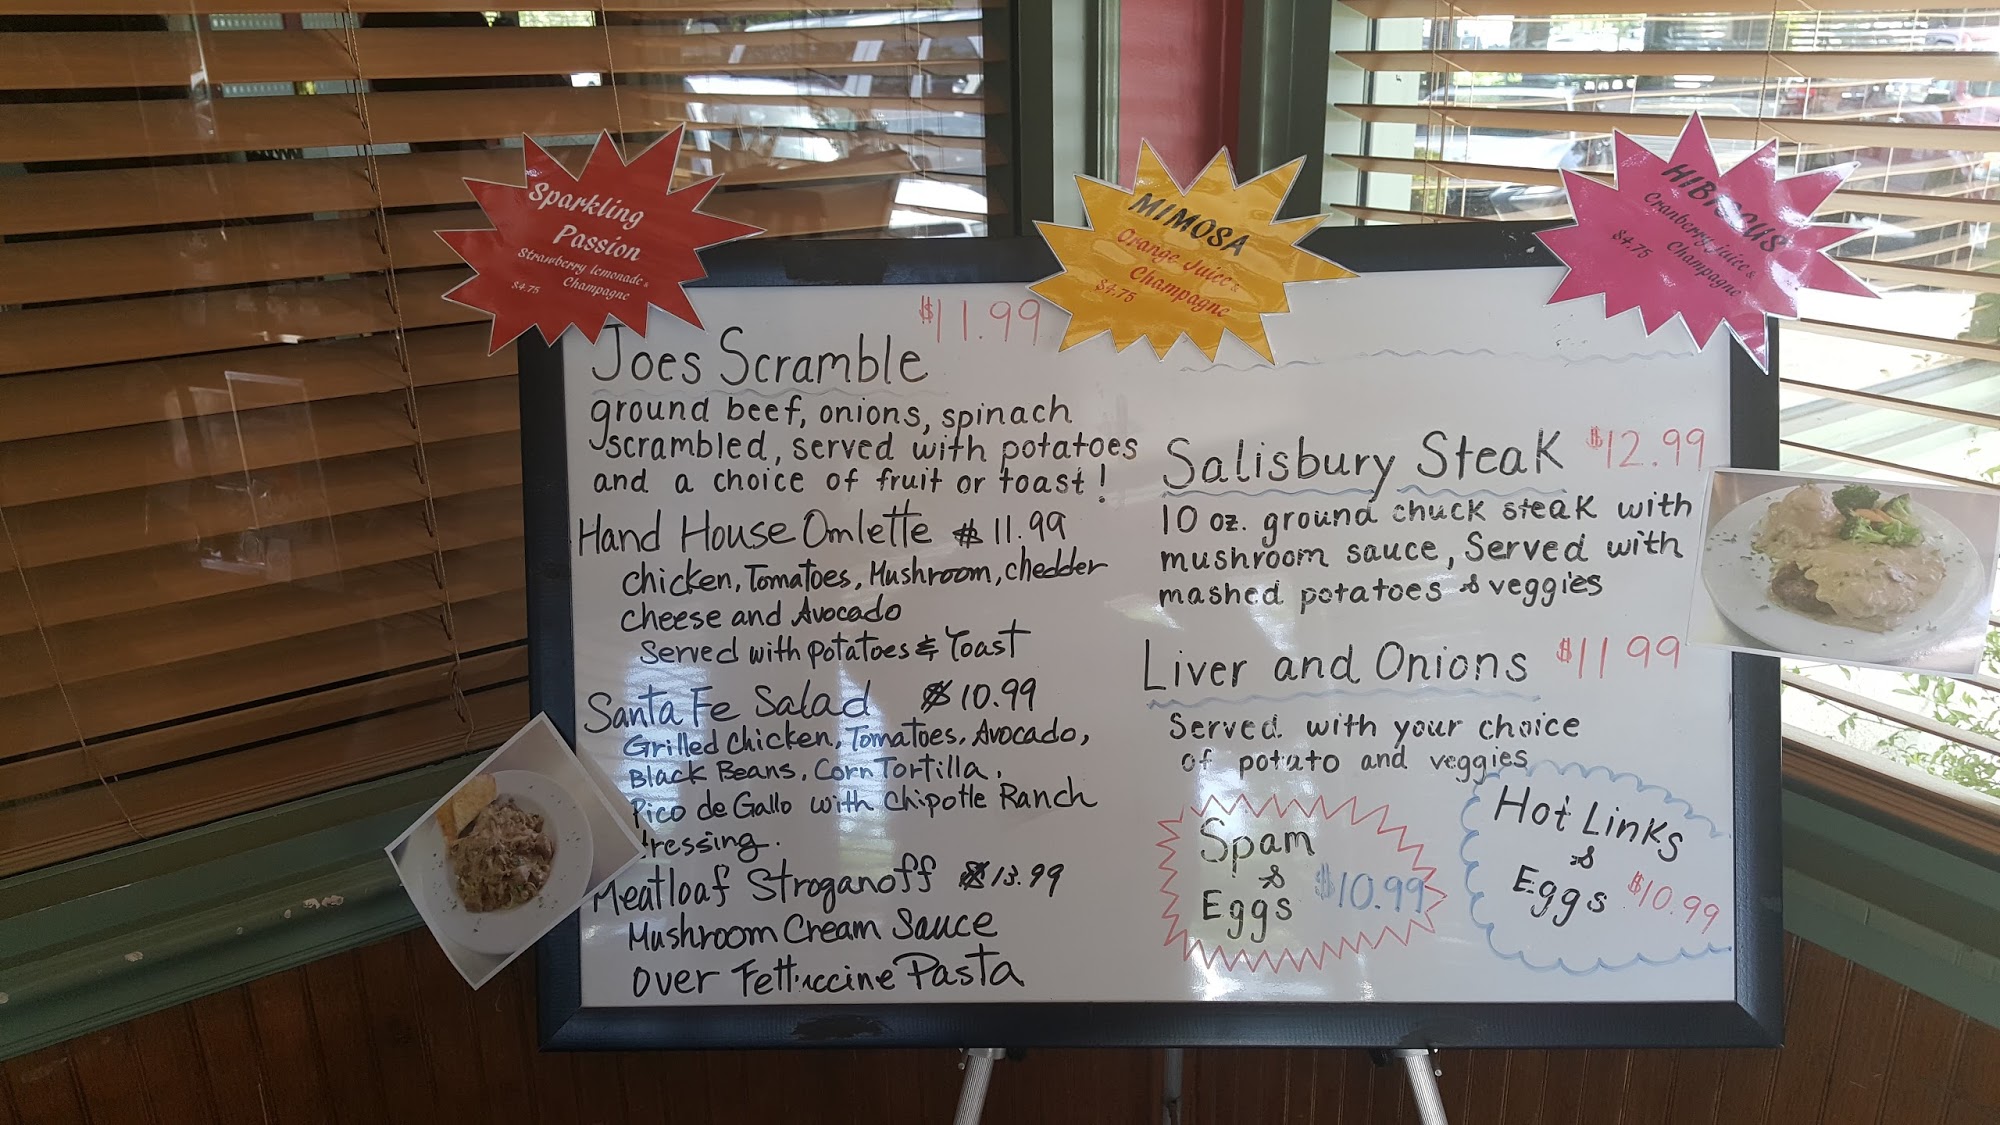 Sparkling
Passion
Strawberry lemonade &
Champagne
$4.75
MIMOSA
Orange Juice &
Champagne
$4.75
HIBISCUS
Cranberry Juice &
Champagne
$4.75
$11.99
Joes Scramble
ground beef, onions, spinach
scrambled, served with potatoes
and a choice of fruit or toast!
Hand House Omlette $11.99
chicken, Tomatoes, Mushroom, chedder
cheese and Avocado
Served with potatoes & Toast
Santa Fe Salad $10.99
Grilled chicken, Tomatoes, Avocado,
Black Beans, Corn Tortilla,
Pico de Gallo with Chipotle Ranch
dressing.
Meatloaf Stroganoff $13.99
Mushroom Cream Sauce
over Fettuccine Pasta
Salisbury Steak $12.99
10 oz. ground chuck steak with
mushroom sauce, Served with
mashed potatoes & veggies
Liver and Onions $11.99
Served with your choice
of potato and veggies
Spam
&
Eggs $10.99
Hot Links
&
Eggs $10.99